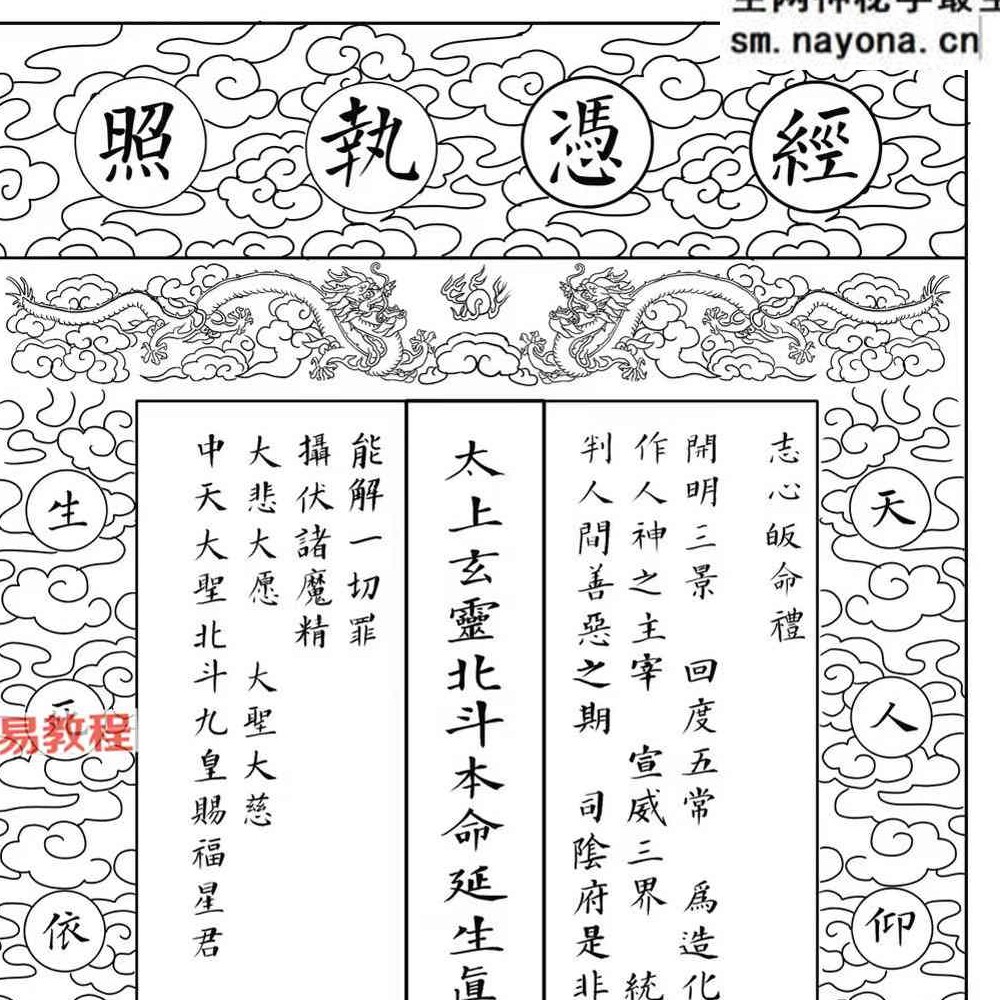 sm.nayona.cn
經憑執照
志心皈命禮
開明三景 回度五常 爲造化
作人神之主宰 宣威三界 統
判人間善惡之期 司陰府是非
太上玄靈北斗本命延生眞
能解一切罪
攝伏諸魔精
大悲大愿 大聖大慈
中天大聖北斗九皇賜福星君
天人仰
生
依
易教程